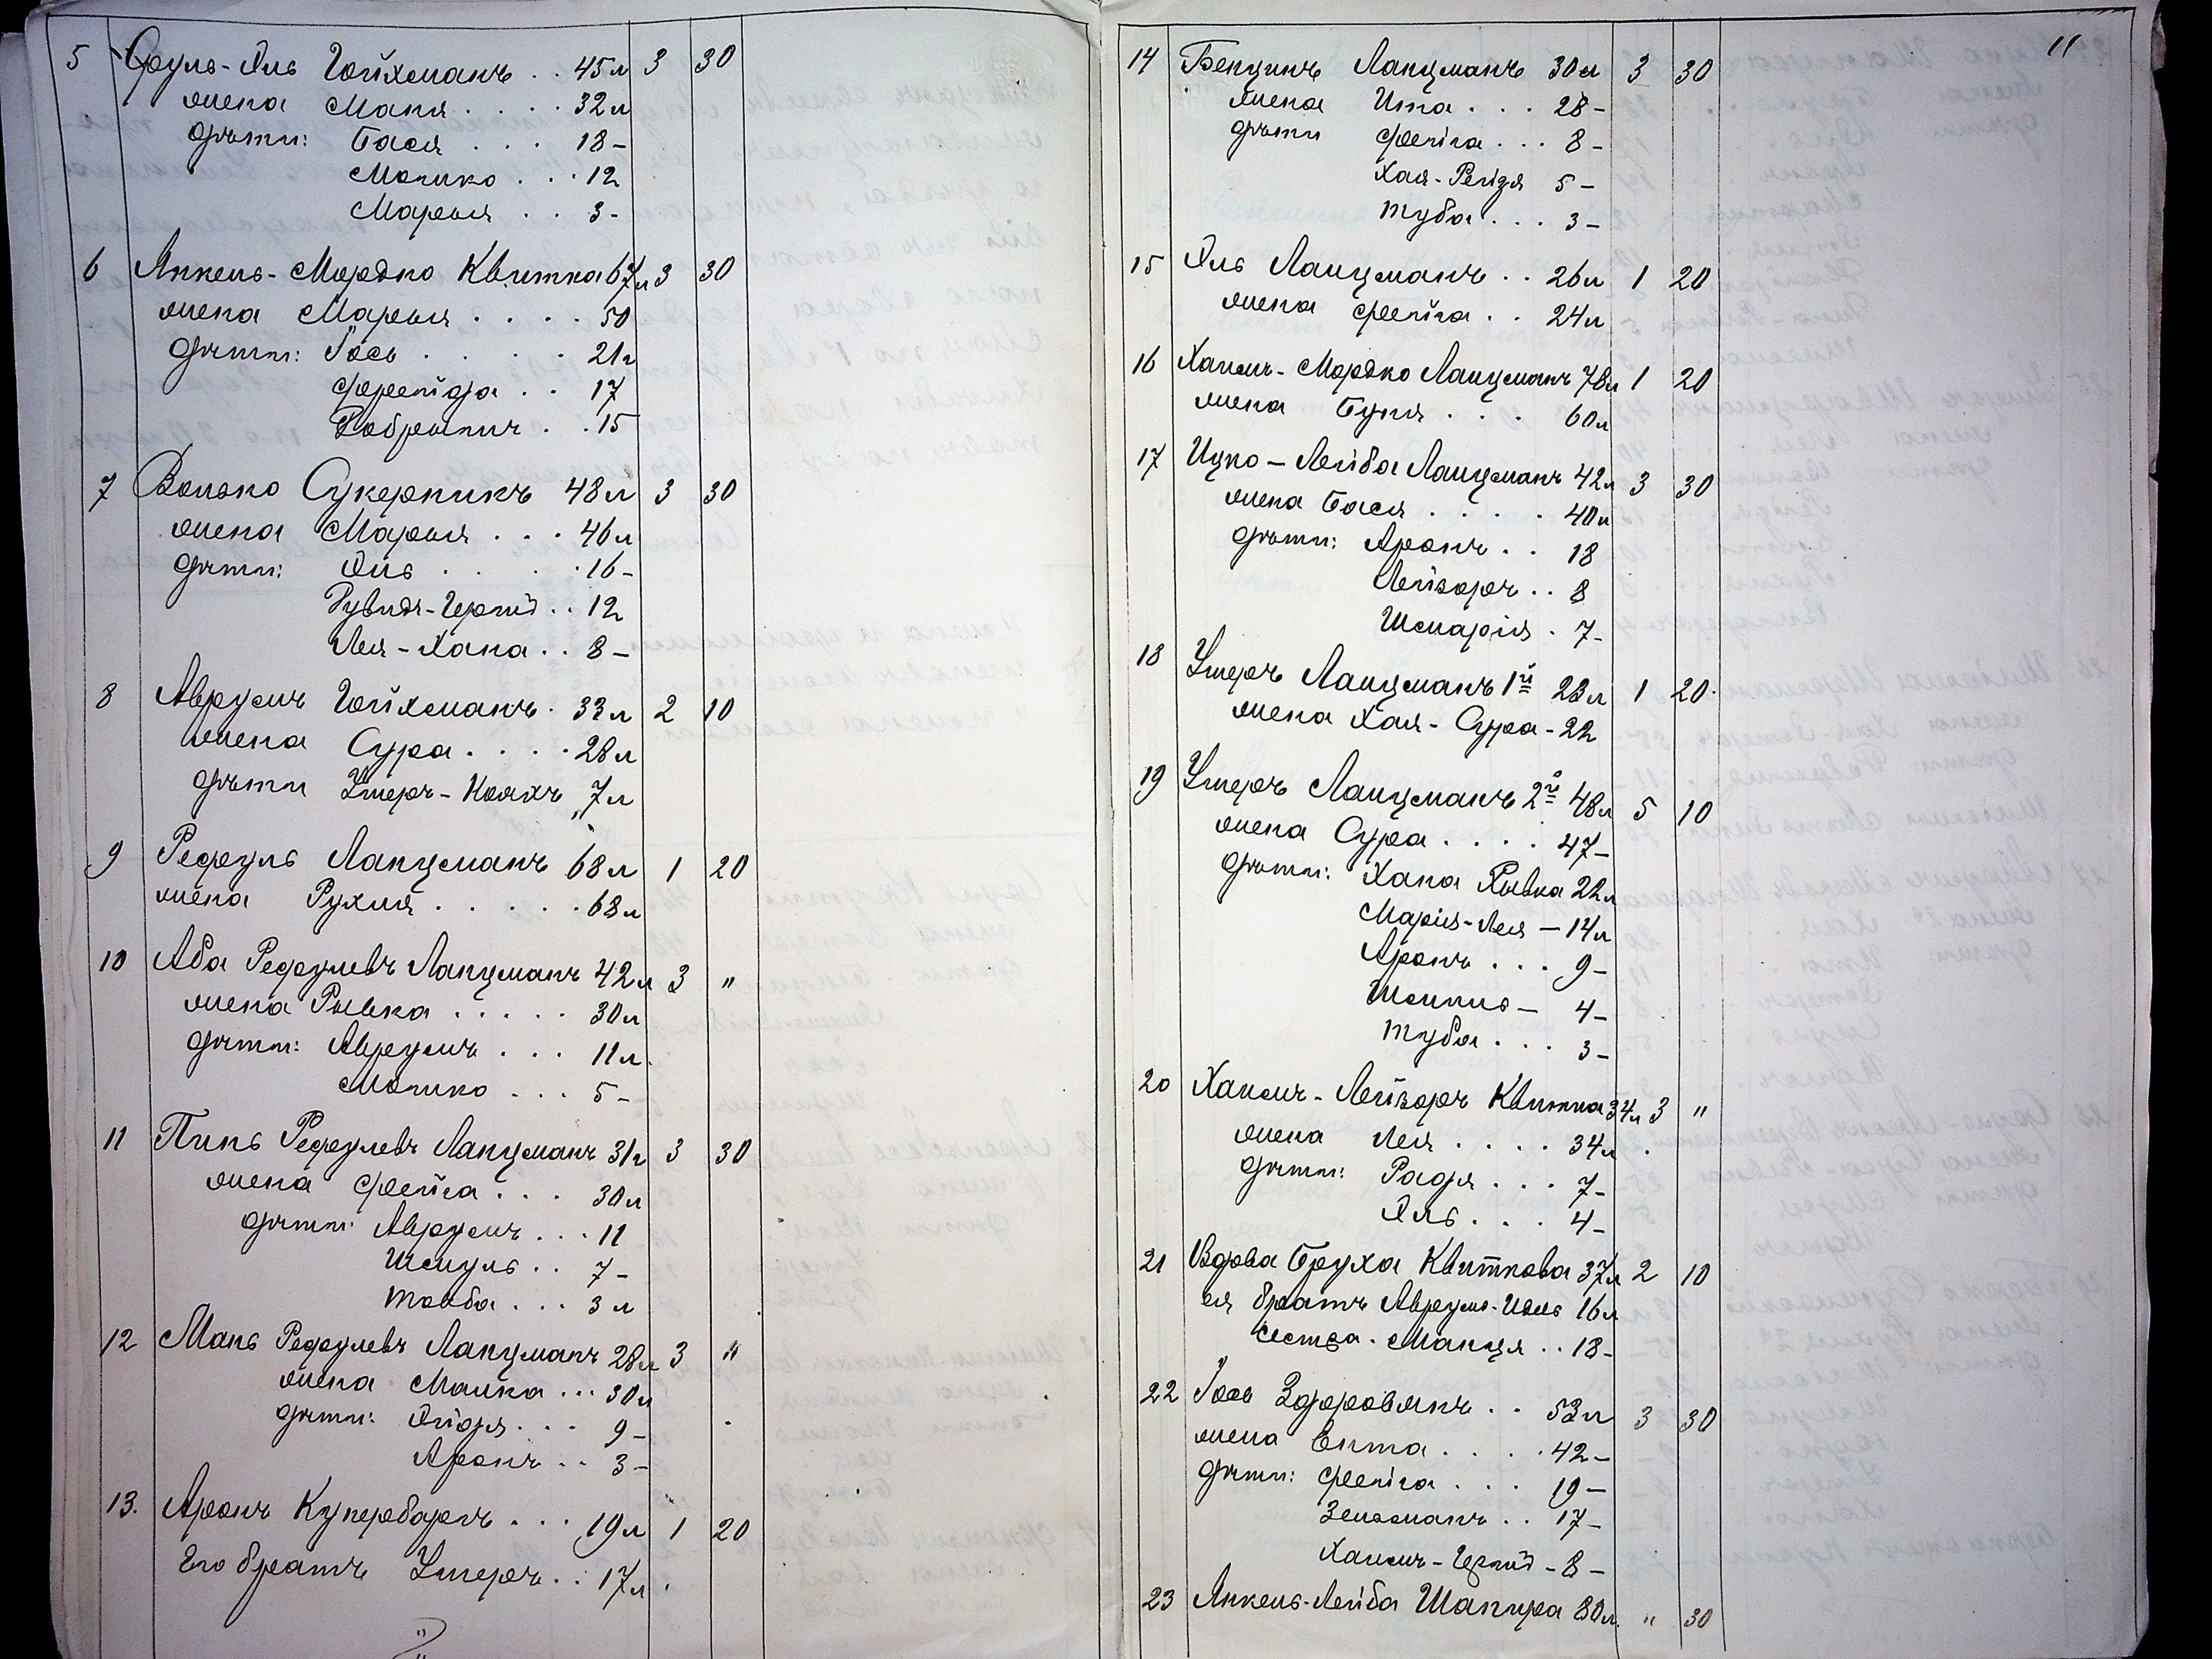 5 Сруль-Эль Гойхманъ . . 45 л 3 30
жена Маня . . . . 32 л
дѣти: Бася . . . 18 -
Мошко . . . 12
Марья . . 3 -
6 Янкель-Мордко Квитка 67 л 3 30
жена Марья . . . . 50
дѣти: Іось . . . . . 21 г
Фрейда . . 17
Добрышъ . . 15
7 Волько Сукерникъ 48 л 3 30
жена Марья . . . 46 л
дѣти: Эль . . . . 16 -
Рувидъ-Гершъ . . 12
Лея-Хана . . 8 -
8 Аврумъ Гойхманъ . 33 л 2 10
жена Сура . . . . 28 л
дѣти Ушеръ-Ноахъ 7 л
9 Рефуль Ланцманъ 68 л 1 20
жена Рухля . . . . . 68 л
10 Аба Рефулевъ Ланцманъ 42 л 3 "
жена Рывка . . . . . 30 л
дѣти: Аврумъ . . . 11 л
Мошко . . . 5 -
11 Пинь Рефулевъ Ланцманъ 31 г 3 30
жена Фейга . . . 30 л
дѣти: Аврумъ . . . 11
Шмуль . . 7 -
Тойба . . . 3 л
12 Мань Рефулевъ Ланцманъ 28 л 3 "
жена Малка . . . 30 л
дѣти: Эйдя . . . 9 -
Аронъ . . 3 -
13. Аронъ Купербаргъ . . . 19 л 1 20
Его братъ Ушеръ . . 17 л
11
14 Бенцинъ Ланцманъ 30 л 3 30
жена Ита . . . 28 -
дѣти Фейга . . . 8 -
Хая-Рейзя 5 -
Туба . . . 3 -
15 Эль Ланцманъ . . 26 л 1 20
жена Фейга . . 24 л
16 Хаимъ-Мордко Ланцманъ 78 л 1 20
жена Буня . . . 60 л
17 Ицко-Лейба Ланцманъ 42 л 3 30
жена Бася . . . . 40 л
дѣти: Аронъ . . 18
Лейзоръ . . 8
Шмарія . 7 -
18 Ушеръ Ланцманъ 1й 23 л 1 20
жена Хая-Сура - 22
19 Ушеръ Ланцманъ 2й 48 л 5 10
жена Сура . . . . 47 -
дѣти: Хана Рывка 22 л
Марія-Лея - 14 л
Аронъ . . . 9 -
Шмиль - 4 -
Туба . . . 3 -
20 Хаимъ-Лейзоръ Квитка 34 л 3 "
жена Лея . . . . 34 л
дѣти: Радя . . . 7 -
Эль . . . 4 -
21 Вдова Бруха Квиткова 37 л 2 10
ея братъ Аврумъ-Иоель 16 л
Сестра. Манця . . 18 -
22 Іось Здоровякъ . . 53 л 3 30
жена Ента . . . . 42 -
дѣти: Фейга . . . 19 -
Зельманъ . . 17 -
Хаимъ-Герш - 8 -
23 Янкель-Лейба Шапира 80 л. " 30